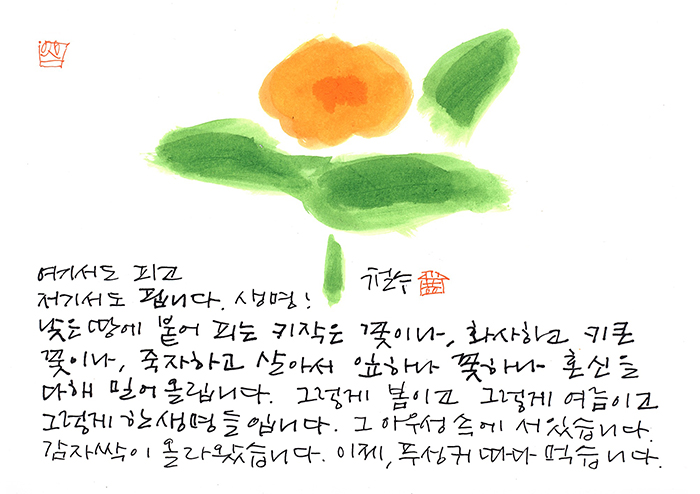 여기서도 피고
저기서도 핍니다. 생명!
철수
낮은 땅에 붙어 피는 키작은 꽃이나, 화사하고 키큰
꽃이나, 죽자하고 살아서 잎하나 꽃하나 혼신을
다해 밀어올립니다. 그렇게 봄이고 그렇게 여름이고
그렇게 한생명들입니다. 그 아우성 속에 서있습니다.
감자싹이 올라왔습니다. 이제, 푸성귀 따다 먹습니다.